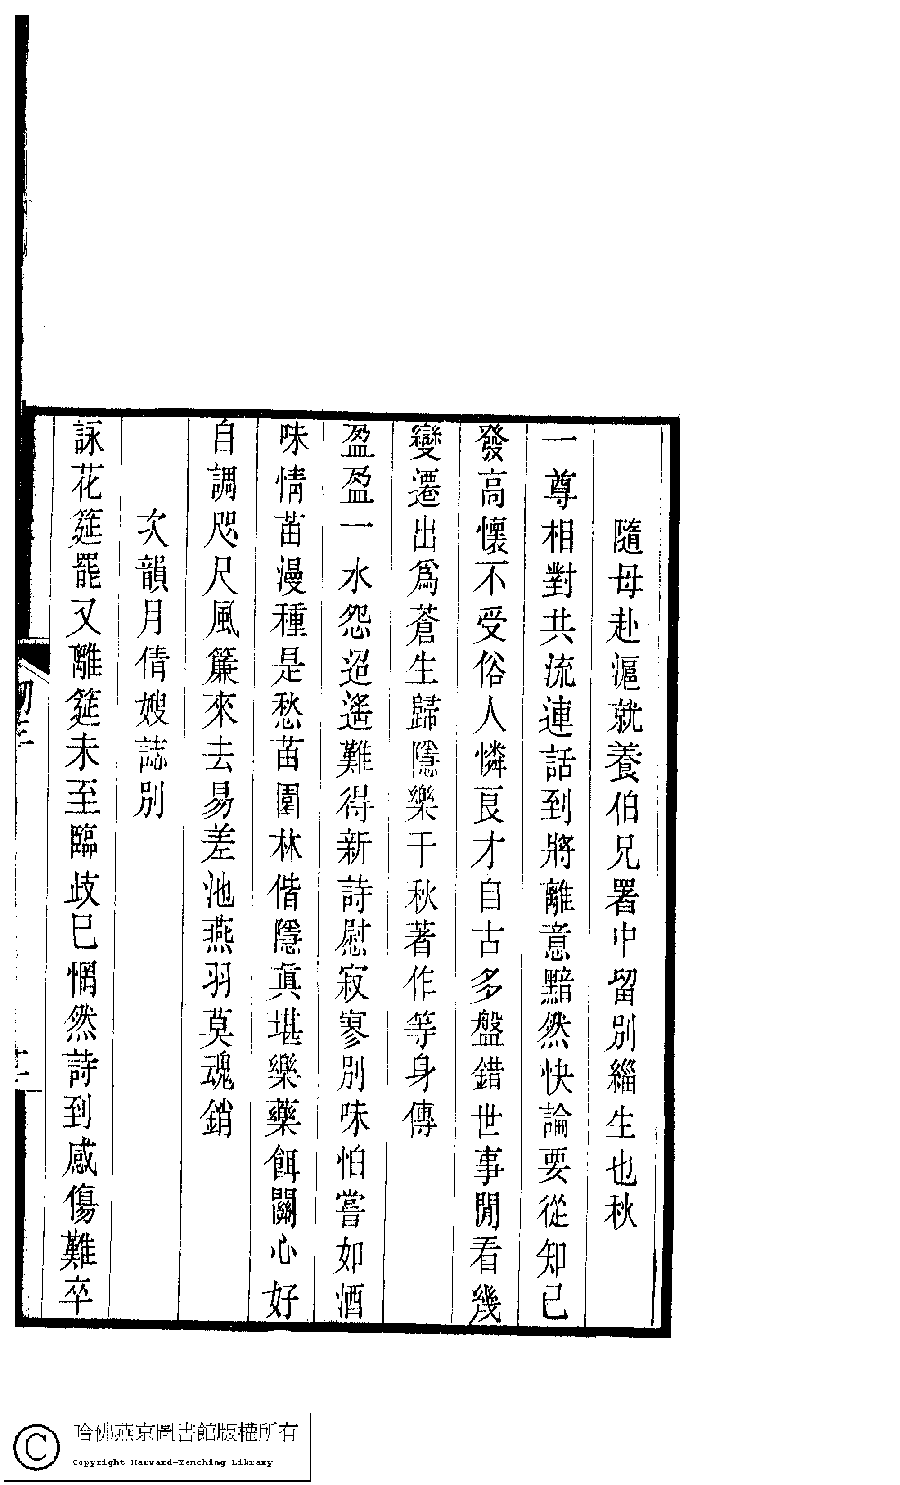 隨母赴滬就養伯兄署中留別緇生也秋
一尊相對共流連話到將離意黯然快論要從知己
發高懷不受俗人憐良才自古多盤錯世事閒看幾
變遷出爲蒼生歸隱樂千秋著作等身傳
盈盈一水怨迢遙難得新詩慰寂寥別味怕嘗如酒
味情苗漫種是愁苗園林偕隱眞堪樂藥餌關心好
自調咫尺風簾來去易差池燕羽莫魂銷
次韻月倩嫂誌別
詠花筵罷又離筵未至臨歧已惘然詩到感傷難卒
哈佛燕京圖書館版權所有
Copyright Harvard-Yenching Library